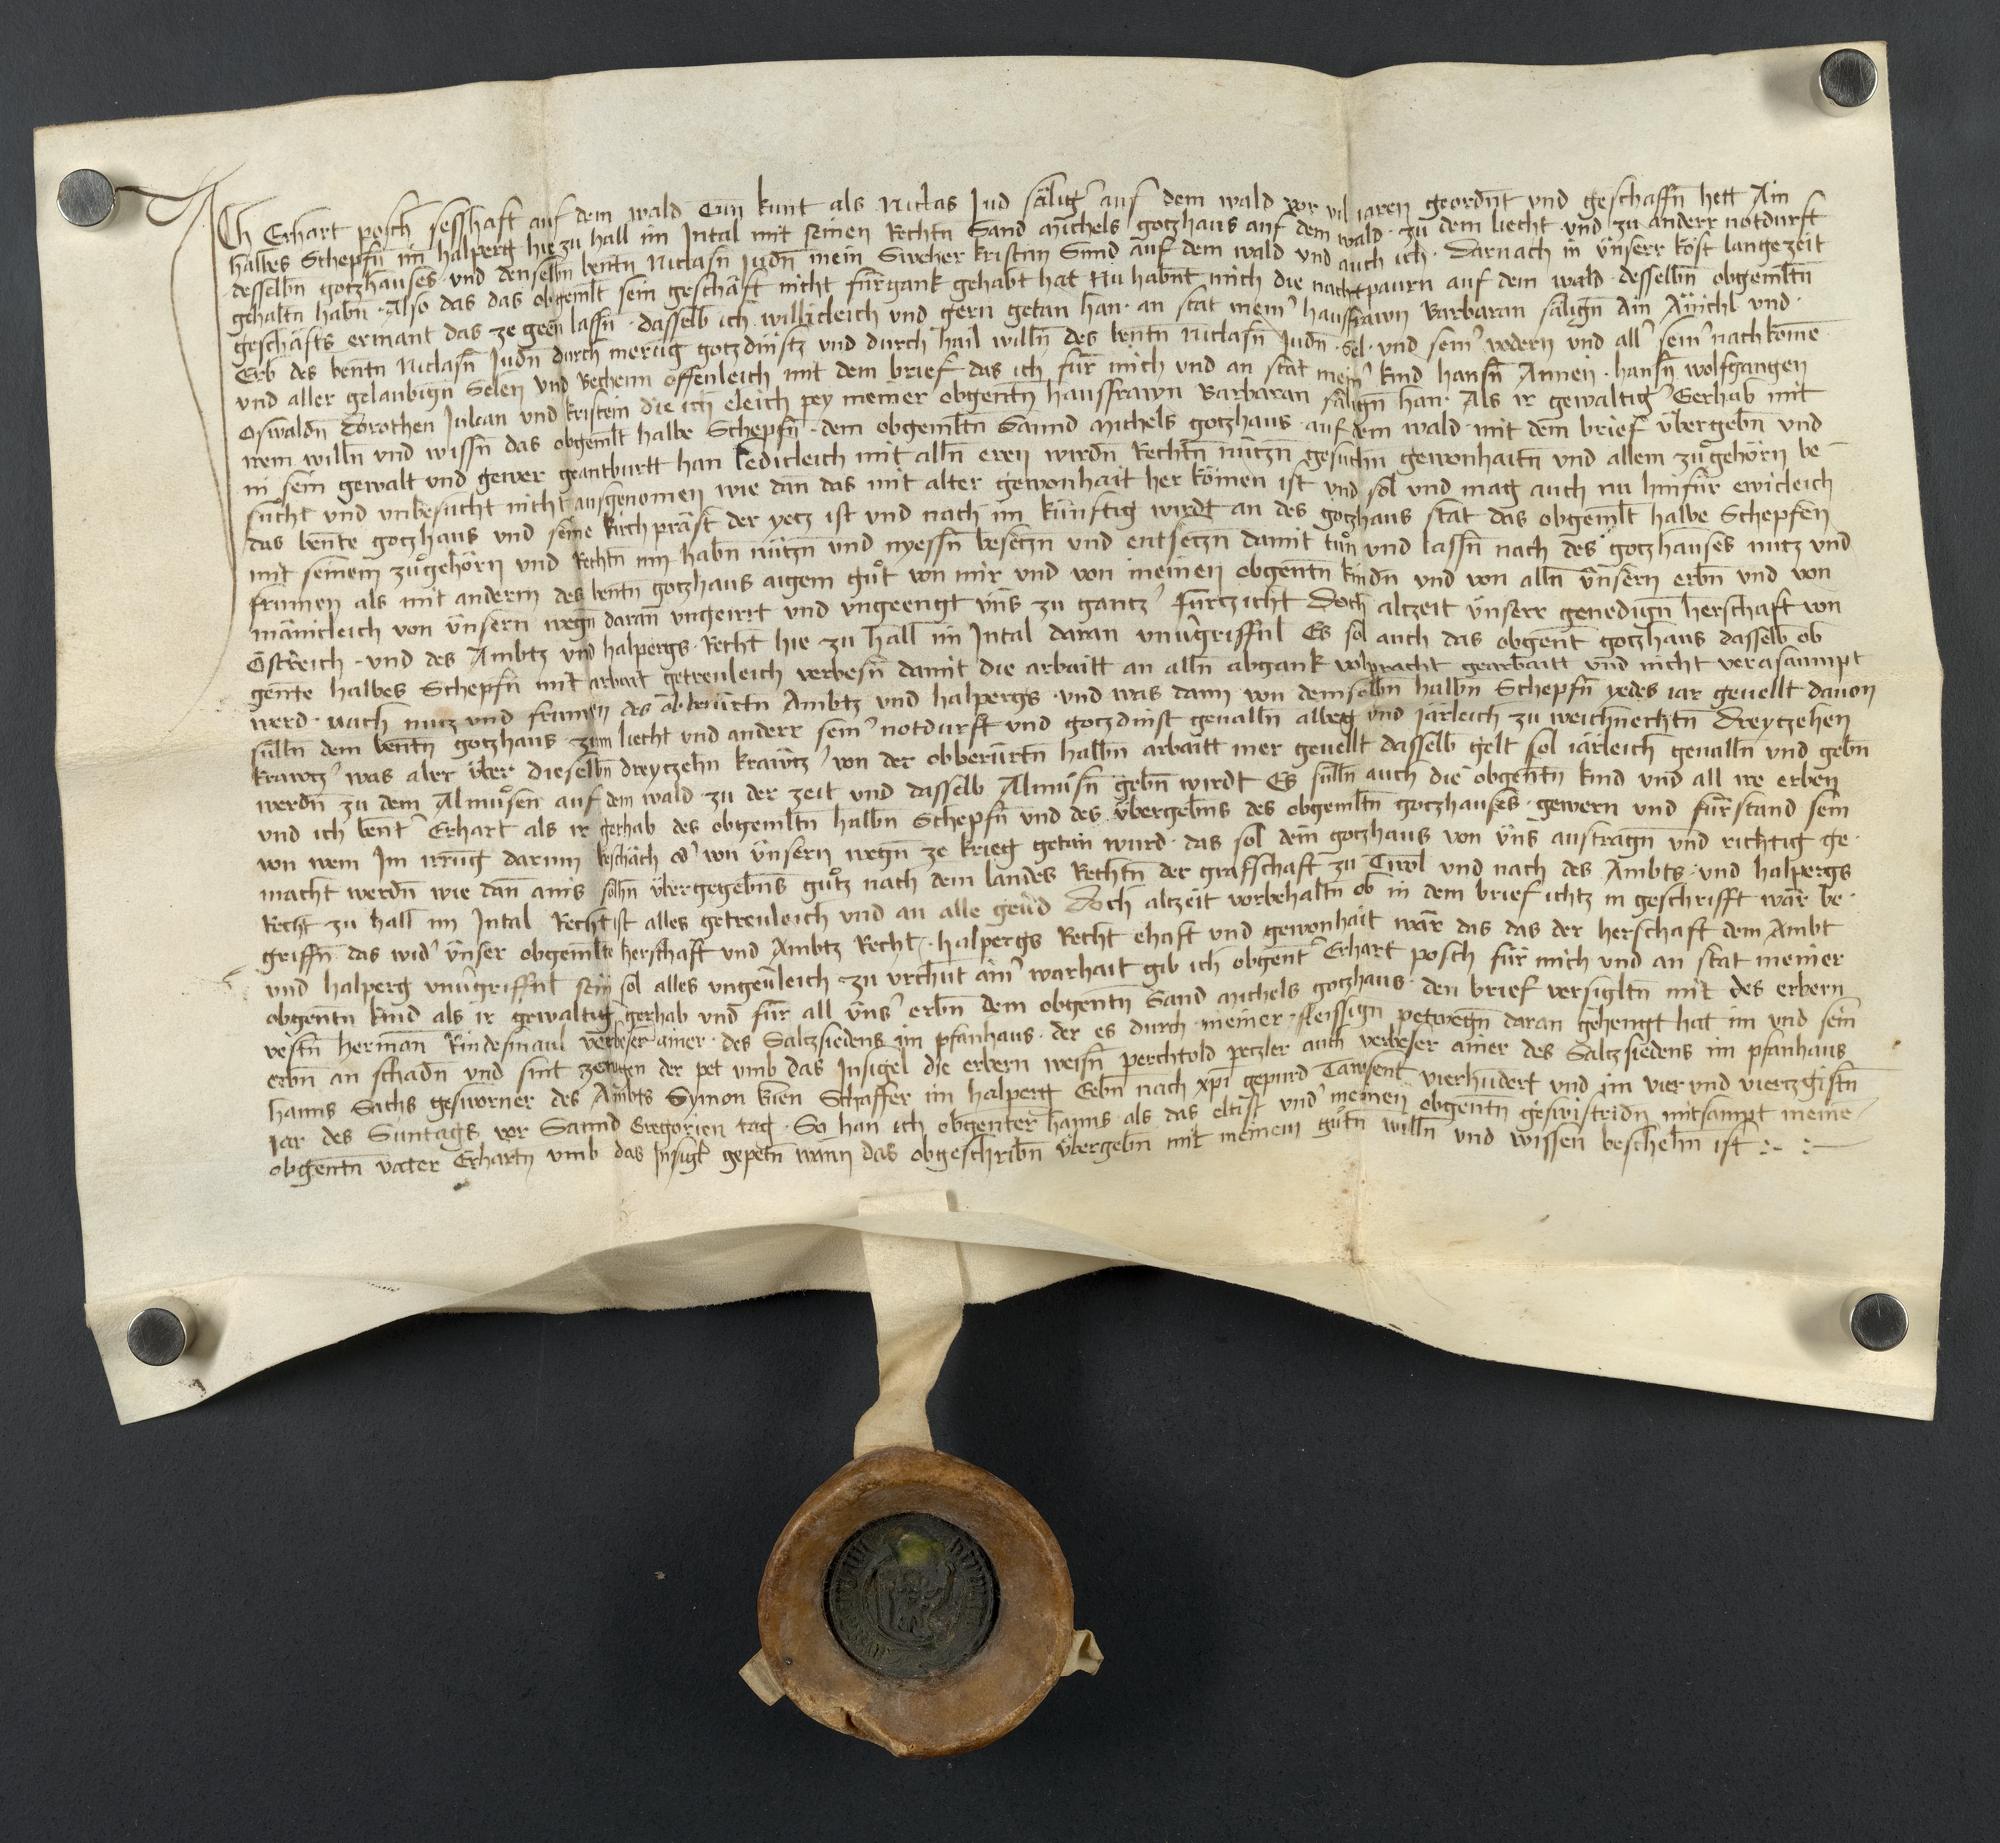 Ich Erhart posch sesshaft auf dem wald Tun kunt als Niclas Jud sälig' auf dem wald vor vil jaren geordn̄t und geschaffn̄ hett Ain
halbes Schepfn̄ im halperg hie zu hall im Intal mit seinen Rechtn̄ Sand Michels gotzhaus auf dem wald · zu dem liecht und zu anderr notdurft
desselbn̄ gotzhauses · und denselbn̄ ben̄tn̄ Niclasn̄ Judn̄ mein Sweher kristan Simd auf dem wald und auch ich · darnach in ünserr kost lange zeit
gehaltn̄ habn̄ · Also das das obgem̄lt sein geschäft nicht fürgank gehabt hat Nu habn̄t mich die nachtpaurn auf dem wald · desselbn̄ obgem̄ltn̄
geschäfts ermant das ze geen lassn̄ · dasselb ich willicleich und gern getan han · an stat mein' hausfrawn Barbaran sälign̄ Ain Änichl und ·
Erb des ben̄tn̄ Niclasn̄ Judn̄ durch merūg gotzdinstz und durch hail willn̄ des ben̄tn̄ Niclasn̄ Judn̄ · Sel · und sein' vodern und all' sein' nachkomē
und aller gelaubign̄ Selen und Vergihe offenleich mit dem brief das ich für mich und an stat mein' kind hansn̄ Annen · hansn̄ wolfgangen
Oswaldn̄ Dorothen Julean und kristein die ich eleich pey meiner obgentn̄ hausfrawn Barbaran sälign̄ han · Als ir gewaltig' Gerhab mit
irem willn̄ und wissn̄ das obgem̄lt halbe Schepfn̄ · dem obgem̄ltn̄ Sannd Michels gotzhaus · auf dem wald · mit dem brief übergebn̄ und
in sein gewalt und gewer geantburtt han ledicleich mit alln̄ eren wirdn̄ Rechtn̄ nützn̄ gesuchn̄ gewonhaitn̄ und allem zůgehörn be
sůcht und unbesucht nicht ausgenomen wie dan das mit alter gewonhait her kömen ist und sol und mag auch nu hinfür ewicleich
das ben̄te gotzhaus und seine kirchpräst der yetz ist und nach im künftig wirdt an des gotzhaus stat das obgem̄lt halbe Schepfen
mit seinem zůgehörn und Rechtn̄ inn habn̄ nützn̄ und nyessn̄ besetzn̄ und entsetzn̄ damit tůn und lassn̄ nach des gotzhauses nutz und
frumen als mit anderm des ben̄tn̄ gotzhaus aigem gůt von mir und von meinen obgentn̄ kindn̄ und von alln̄ ünsern erbn̄ und von
mänicleich von ünsern wegn̄ daran ungeirrt und ungeengt üns zu gantz' fürtzicht Doch altzeit ünserr genedign̄ herschaft von
Österreich · und des Ambtz und halpergs · Recht hie zu hall im Intal daran unūgriffnl Es sol auch das obgent gotzhaus dasselb ob
gente halbes Schepfn̄ mit arbait getreuleich verbesn̄ damit die arbaitt an alln̄ abgank volpracht gearbaitt und nicht versaumpt
werd · nach nutz und frumen des obberürtn̄ Ambtz und halpergs · und was dann von demselbn̄ halbn̄ Schepfn̄ yedes jar gevellt davon
sülln̄ dem ben̄tn̄ gotzhaus · zum liecht und anderr sein' notdurft und gotzdinst gevalln̄ albeg und järleich zu weichnechtn̄ dreytzehen
krawtz' was aber über dieselbn̄ dreytzehn̄ krawtz' von der obberürtn̄ halbn̄ arbaitt mer gevellt dasselb gelt sol järleich gevalln̄ und gebn̄
werdn̄ zu dem Almůsen auf dem wald · zu der zeit und dasselb Almůsn̄ gebn̄ wirdt Es sülln̄ auch die obgentn̄ kind und all ire erben
und ich ben̄t' Erhart als ir gerhab des obgem̄ltn̄ halbn̄ Schepfn̄ und des übergebn̄s des obgem̄ltn̄ gotzhauses · gewern und fürstand sein
von wem Im irrūg darum beschäch od' von ünsern wegn̄ ze krieg getan wurd · das sol dem gotzhaus von üns austragn̄ und richtig ge ·
macht werdn̄ wie dan̄ ains sölhn̄ übergegebn̄s gůtz nach dem landes Rechtn̄ der grafschaft zu Tirol und nach des Ambts · und halpergs
Recht zu hall im Intal Recht ist alles getreuleich und an alle gev'd Doch altzeit vorbehaltn̄ ob in dem brief ichtz in geschrifft wär be ·
griffn̄ das wid' ünser obgem̄lte herschaft und Ambtz Recht · halpergs Recht ehaft und gewonhait wär das das der herschaft dem Ambt
und halperg unūgriffnl sein sol alles ungev'leich zu urchūt ain' warhait gib ich obgent' Erhart posch für mich und an stat meiner
obgentn̄ kind als ir gewaltig' gerhab und für all üns' erbn̄ dem obgentn̄ Sand Michels gotzhaus · den brief versigltn̄ mit des erbern
vestn̄ herman̄ Rindesmaul verbeser ainer · des Saltzsiedens im pfanhaus · der es durch meiner · fleissign̄ petwegn̄ daran gehengt hat im und sein
erbn̄ an schadn̄ und sint zewgen der pet umb das Insigel die erbern weisn̄ perchtold petzler auch verbeser ainer des Saltzsiedens im pfanhaus
hanns Sachs gesworner des Ambts Symon kien Schaffer im halperg Gebn̄ nach xp̄i gepurd Tawsent vierhundert und im vier und viertzgistn̄
jar des Suntags vor Sannd Gregorien tag · So han ich obgenter hanns · als das eltist und' meinen obgentn̄ geswistridn̄ mitsampt meinē
obgentn̄ vater Erhartn̄ umb das Insigl' gepetn̄ wann das obgeschribn̄ übergebn̄ mit meinem gůtn̄ willn̄ und wissen beschehn̄ ist